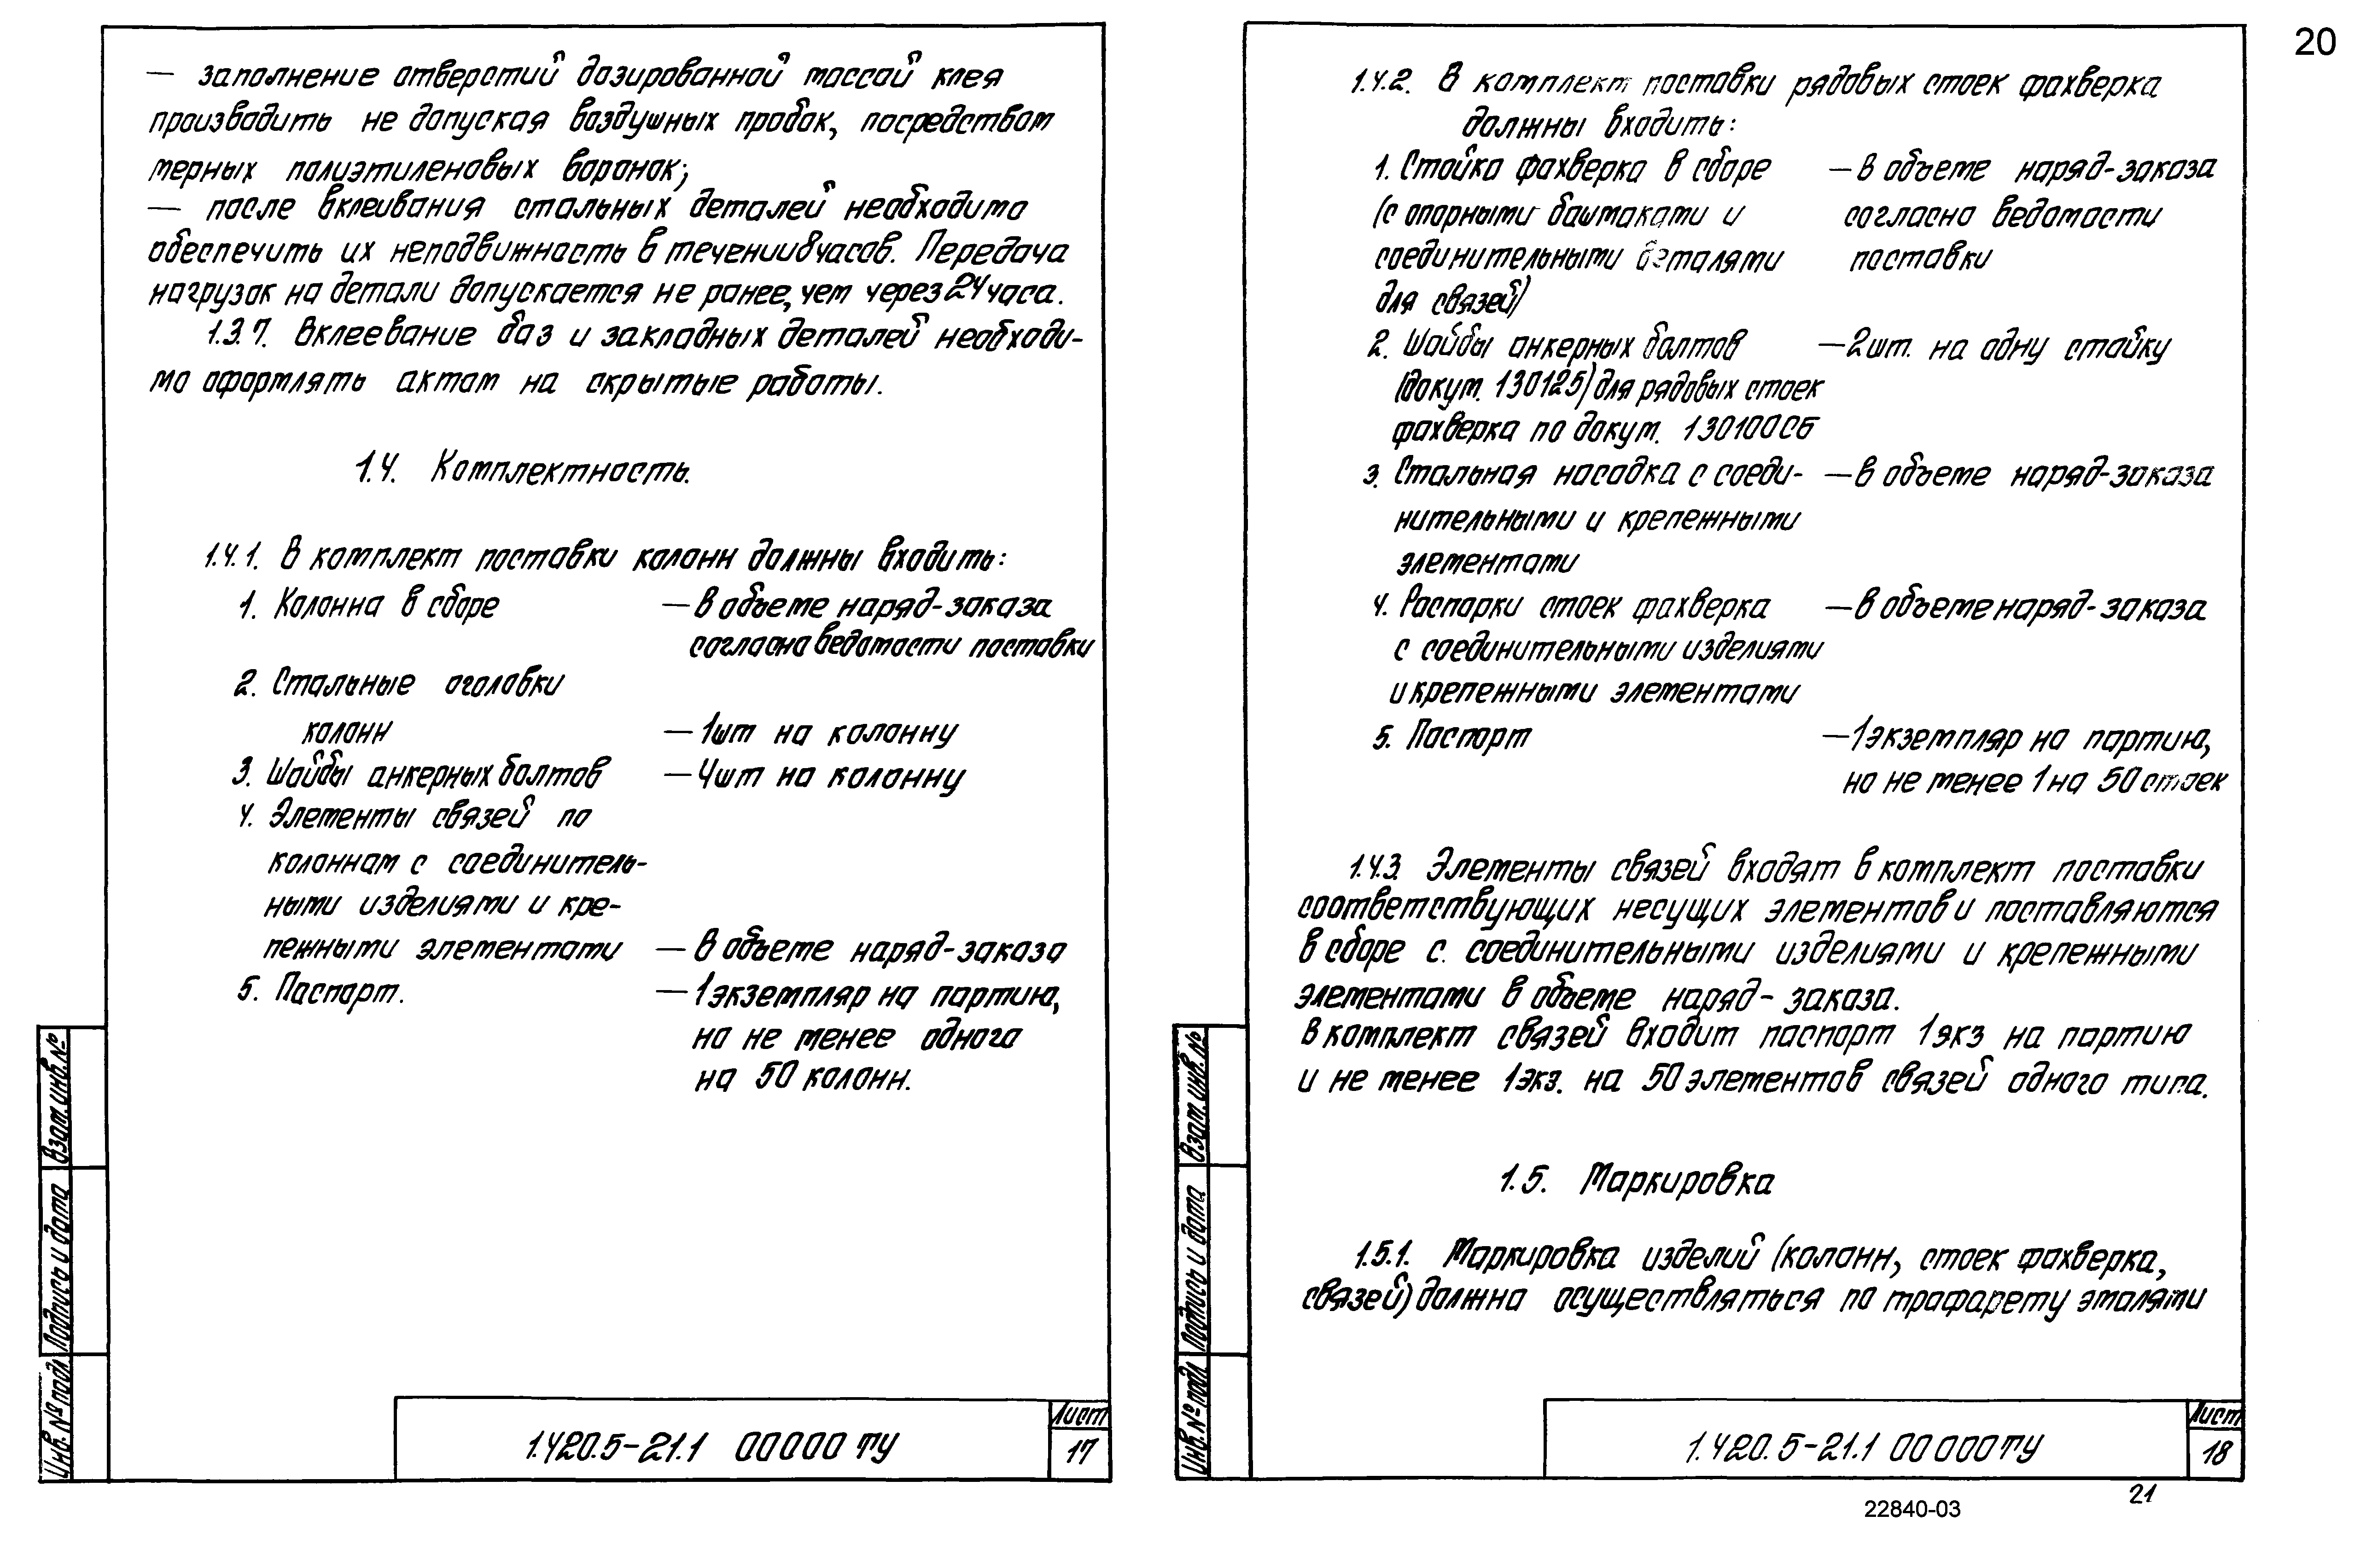 — заполнение отверстий дозированной массой клея
производить не допуская воздушных пробок, посредством
мерных полиэтиленовых воронок;
— после вклеивания стальных деталей необходимо
обеспечить их неподвижность в течении 8 часов. Передача
нагрузок на детали допускается не ранее, чем через 24 часа.
1.3.7. Вклеевание баз и закладных деталей необходи-
мо оформлять актом на скрытые работы.
1.4. Комплектность.
1.4.1. В комплект поставки колонн должны входить:
1. Колонна в сборе — в объеме наряд-заказа
согласно ведомости поставки
2. Стальные оголовки
колонн — 1шт на колонну
3. Шайбы анкерных болтов — 4шт на колонну
4. Элементы связей по
колоннам с соединитель-
ными изделиями и кре-
пежными элементами — в объеме наряд-заказа
5. Паспорт. — 1 экземпляр на партию,
но не менее одного
на 50 колонн.
Взам. инв. №
Подпись и дата
Инв. № подл
1.420.5-21.1 00000 ТУ
Лист
17
20
1.4.2. В комплект поставки рядовых стоек фахверка
должны входить:
1. Стойка фахверка в сборе — в объеме наряд-заказа
(с опорными башмаками и согласно ведомости
соединительными деталями поставки
для связей)
2. Шайбы анкерных болтов — 2шт. на одну стойку
(докум. 130125) для рядовых стоек
фахверка по докум. 130100СБ
3. Стальная насадка с соеди- — в объеме наряд-заказа
нительными и крепежными
элементами
4. Распорки стоек фахверка — в объеме наряд-заказа
с соединительными изделиями
и крепежными элементами
5. Паспорт — 1 экземпляр на партию,
но не менее 1 на 50 стоек
1.4.3. Элементы связей входят в комплект поставки
соответствующих несущих элементов и поставляются
в сборе с соединительными изделиями и крепежными
элементами в объеме наряд-заказа.
В комплект связей входит паспорт 1 экз на партию
и не менее 1 экз. на 50 элементов связей одного типа.
1.5. Маркировка
1.5.1. Маркировка изделий (колонн, стоек фахверка,
связей) должна осуществляться по трафарету эмалями
Взам. инв. №
Подпись и дата
Инв. № подл.
1.420.5-21.1 00000ТУ
Лист
18
21
22840-03